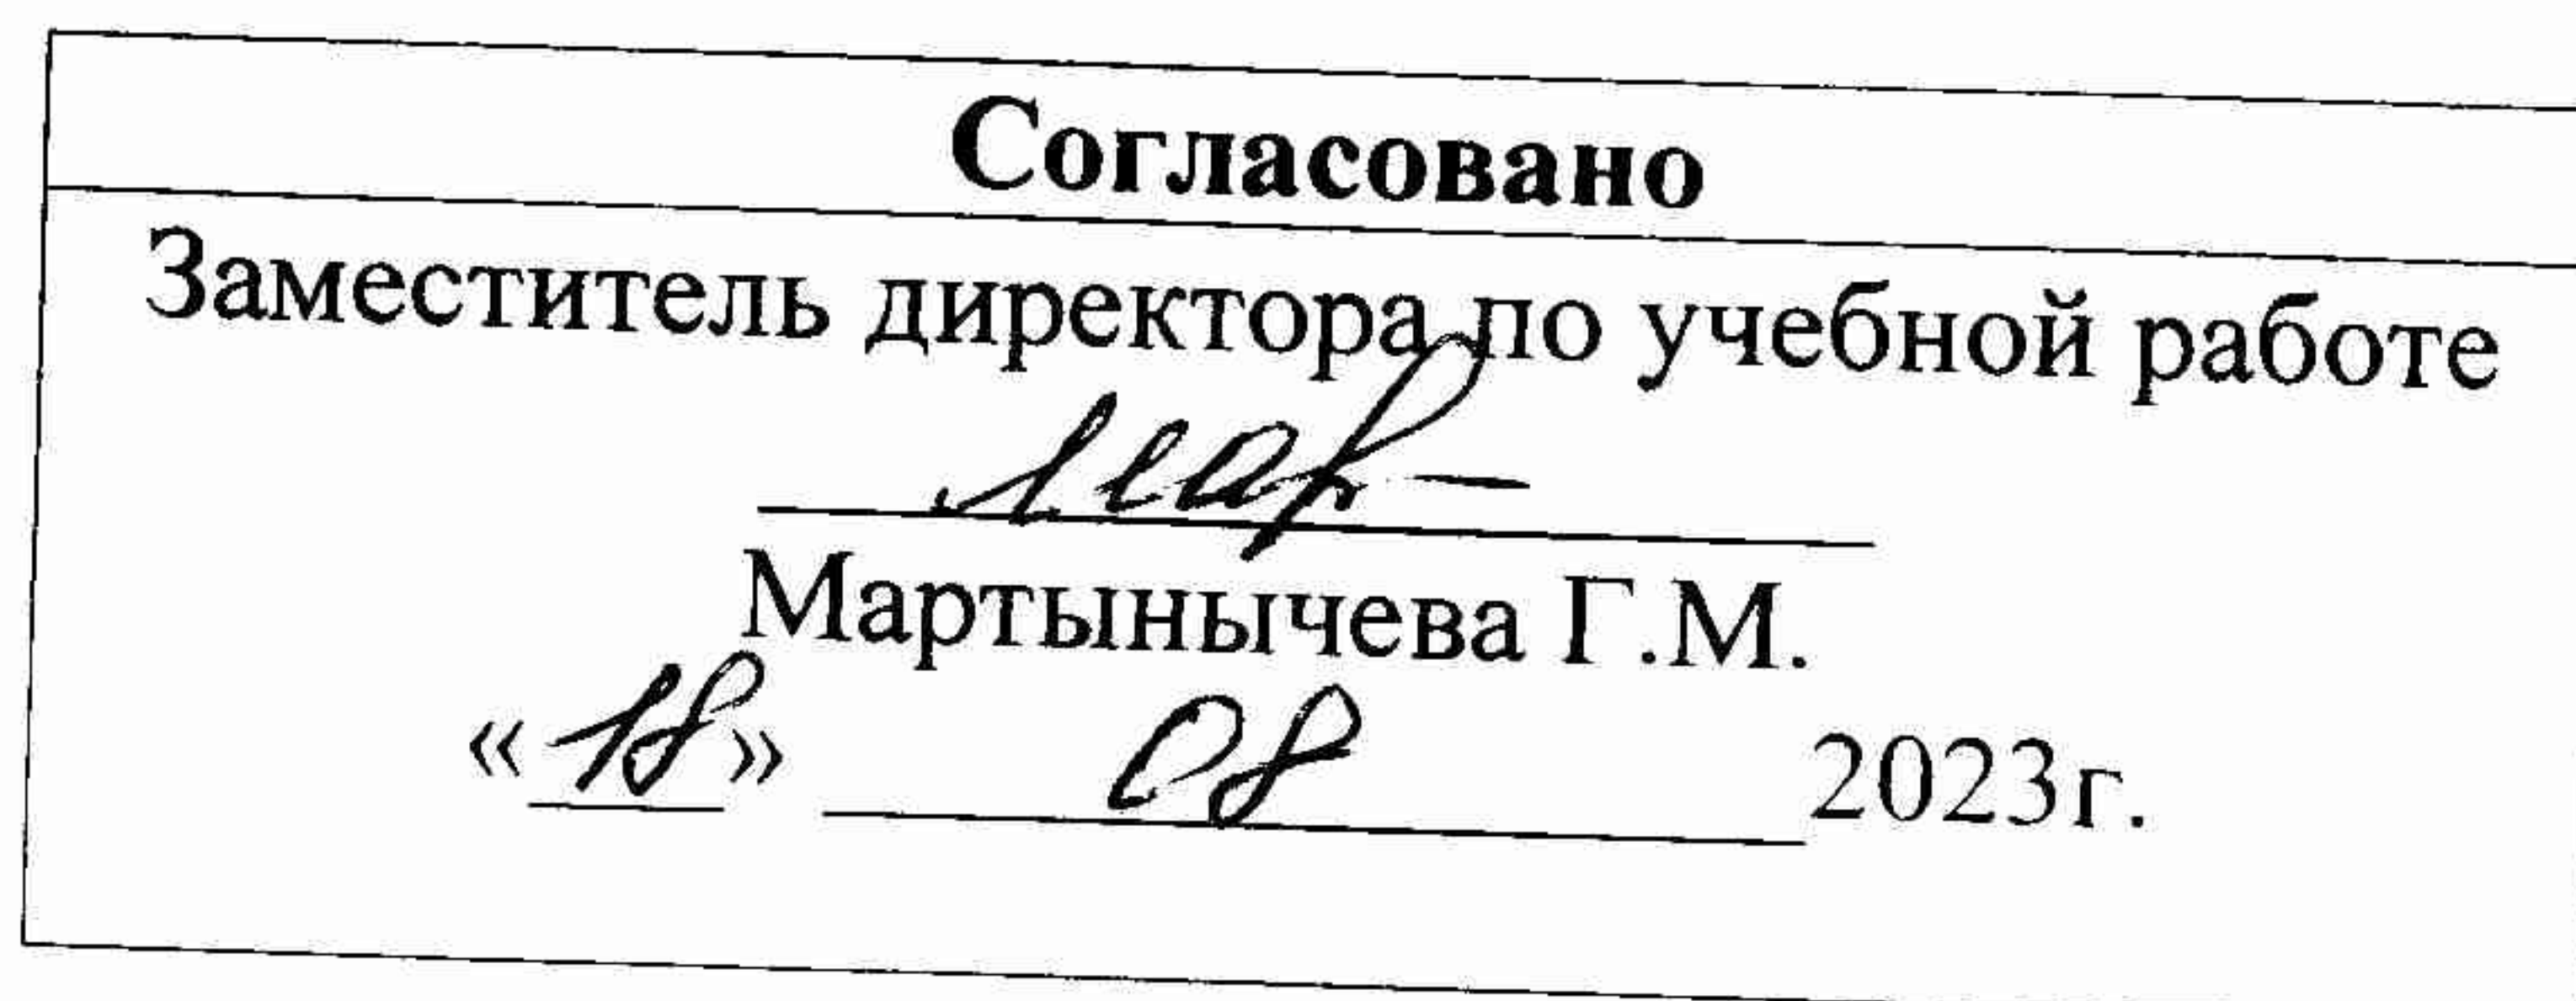 Согласовано
Заместитель директора по учебной работе
Мартынычева Г.М.
«18» 08 2023г.